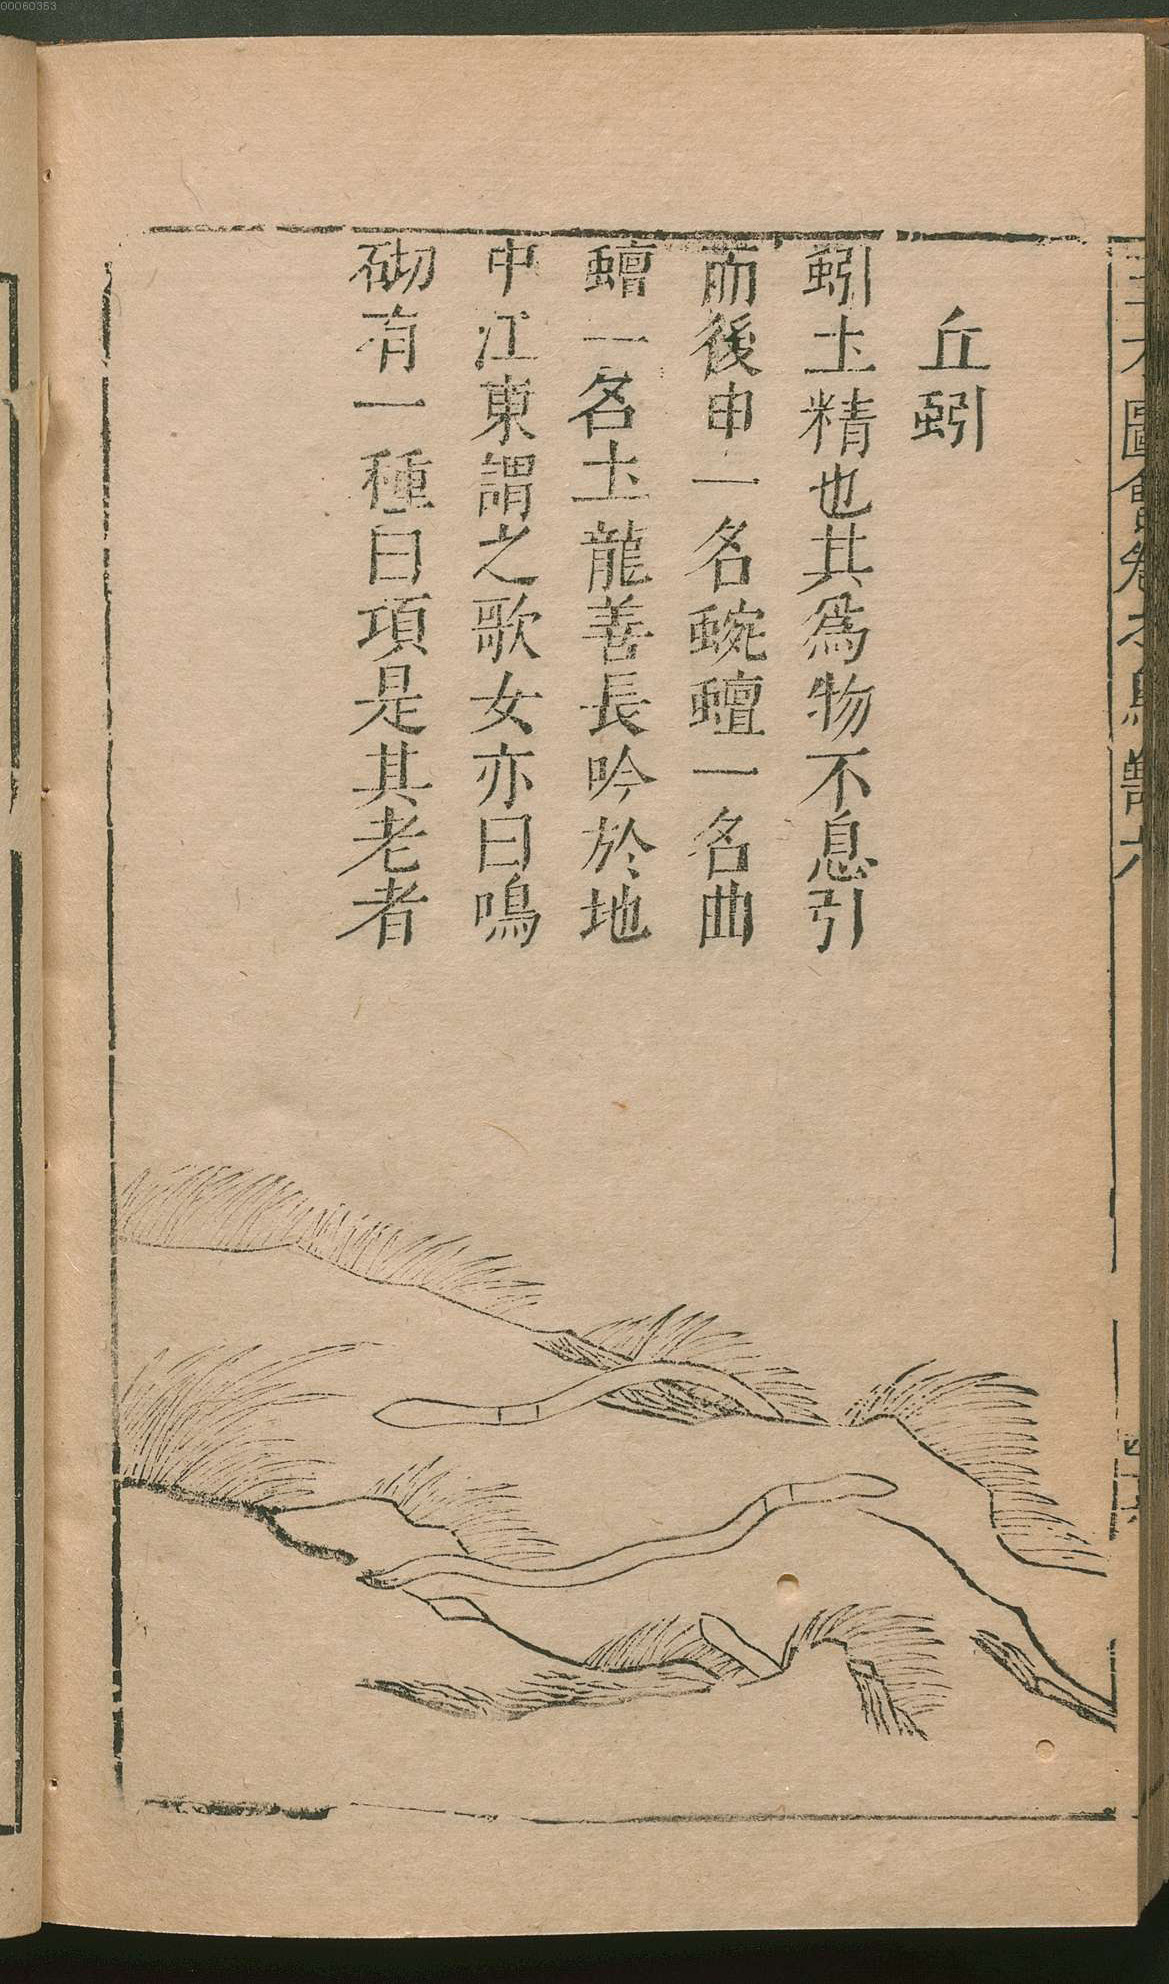 00060353
丘蚓
蚓土精也其爲物不息引
而後申一名蜿蟺一名曲
蟺一名土龍善長吟於地
中江東謂之歌女亦曰鳴
砌有一種曰項是其老者
圖會卷